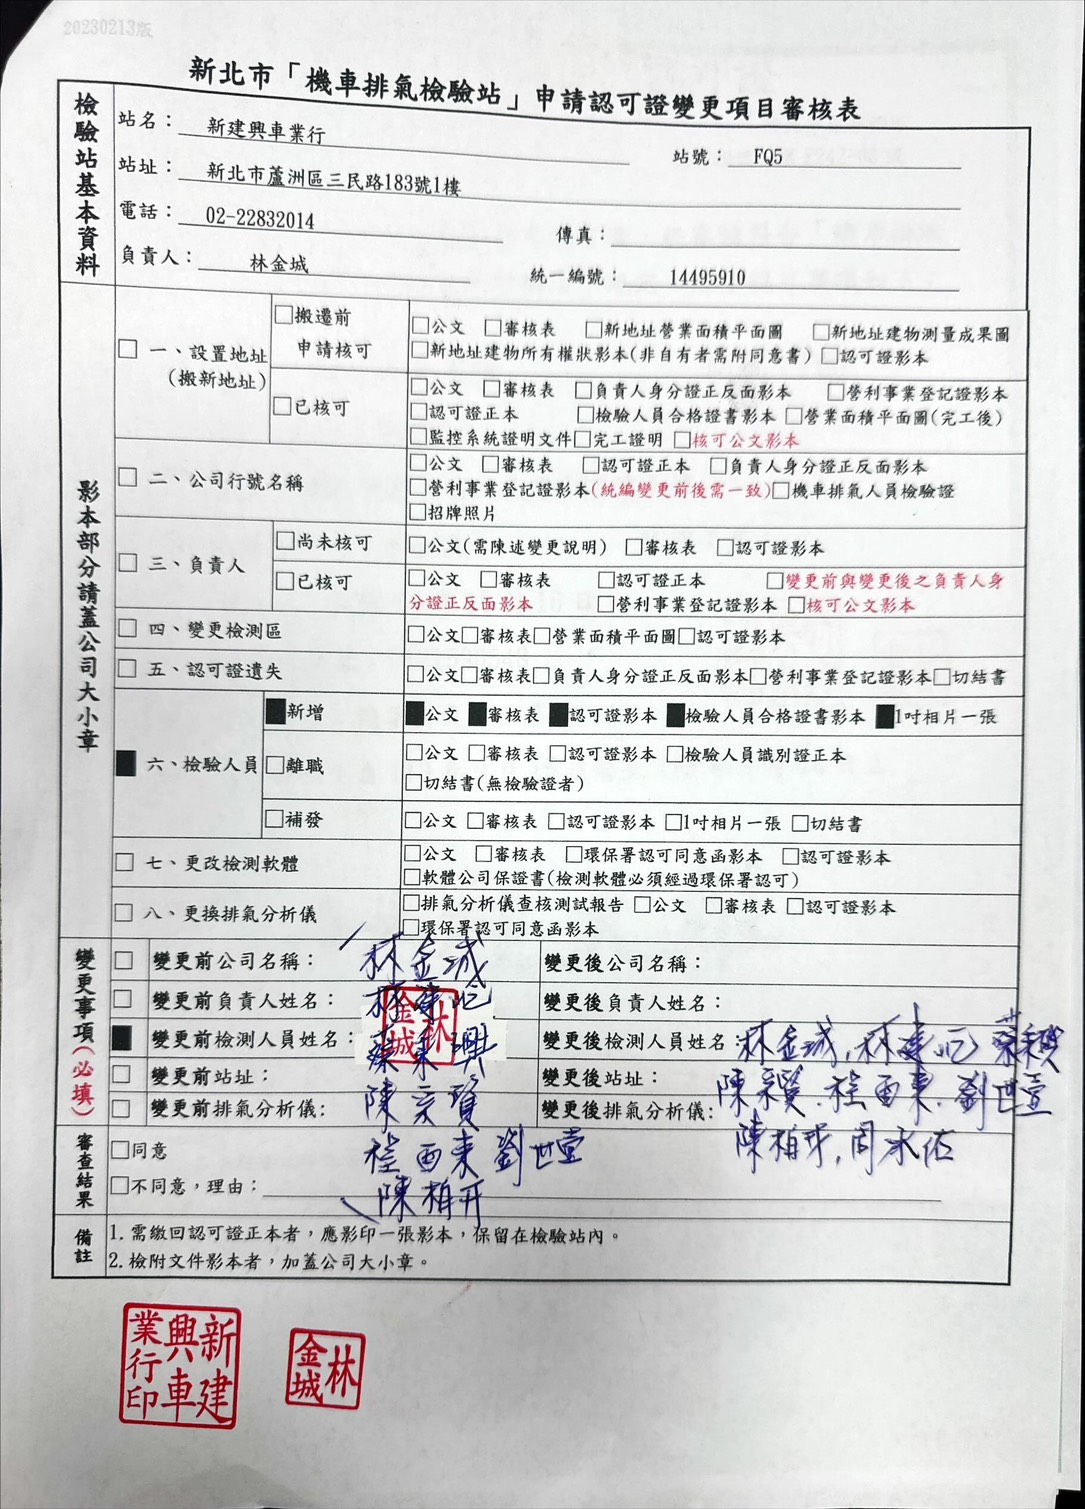 20230213版
新北市「機車排氣檢驗站」申請認可證變更項目審核表
檢驗站基本資料
站名：新建興車業行
站號：FQ5
站址：新北市蘆洲區三民路183號1樓
電話：02-22832014
傳真：
負責人：林金城
統一編號：14495910
影本部分請蓋公司大小章
□ 一、設置地址
(搬新地址)
□搬遷前
申請核可
□公文 □審核表 □新地址營業面積平面圖 □新地址建物測量成果圖
□新地址建物所有權狀影本(非自有者需附同意書) □認可證影本
□已核可
□公文 □審核表 □負責人身分證正反面影本 □營利事業登記證影本
□認可證正本 □檢驗人員合格證書影本 □營業面積平面圖(完工後)
□監控系統證明文件□完工證明 □核可公文影本
□ 二、公司行號名稱
□公文 □審核表 □認可證正本 □負責人身分證正反面影本
□營利事業登記證影本(統編變更前後需一致)□機車排氣人員檢驗證
□招牌照片
□ 三、負責人
□尚未核可
□公文(需陳述變更說明) □審核表 □認可證影本
□已核可
□公文 □審核表 □認可證正本 □變更前與變更後之負責人身
分證正反面影本 □營利事業登記證影本 □核可公文影本
□ 四、變更檢測區
□公文□審核表□營業面積平面圖□認可證影本
□ 五、認可證遺失
□公文□審核表□負責人身分證正反面影本□營利事業登記證影本□切結書
■ 六、檢驗人員
■新增
■公文 ■審核表 ■認可證影本 ■檢驗人員合格證書影本 ■1吋相片一張
□離職
□公文 □審核表 □認可證影本 □檢驗人員識別證正本
□切結書(無檢驗證者)
□補發
□公文 □審核表 □認可證影本 □1吋相片一張 □切結書
□ 七、更改檢測軟體
□公文 □審核表 □環保署認可同意函影本 □認可證影本
□軟體公司保證書(檢測軟體必須經過環保署認可)
□ 八、更換排氣分析儀
□排氣分析儀查核測試報告 □公文 □審核表 □認可證影本
□環保署認可同意函影本
變更事項(必填)
□ 變更前公司名稱：
變更後公司名稱：
□ 變更前負責人姓名：
變更後負責人姓名：
■ 變更前檢測人員姓名：
林金城
陳
桂西東 劉世壹
陳柏
林金城
變更後檢測人員姓名：林金城，林建
陳 桂西東．劉世壹
陳柏 ，周永佑
□ 變更前站址：
變更後站址：
□ 變更前排氣分析儀：
變更後排氣分析儀：
審查結果
□同意
□不同意，理由：
備註
1. 需繳回認可證正本者，應影印一張影本，保留在檢驗站內。
2. 檢附文件影本者，加蓋公司大小章。
新建興車業行印
林金城